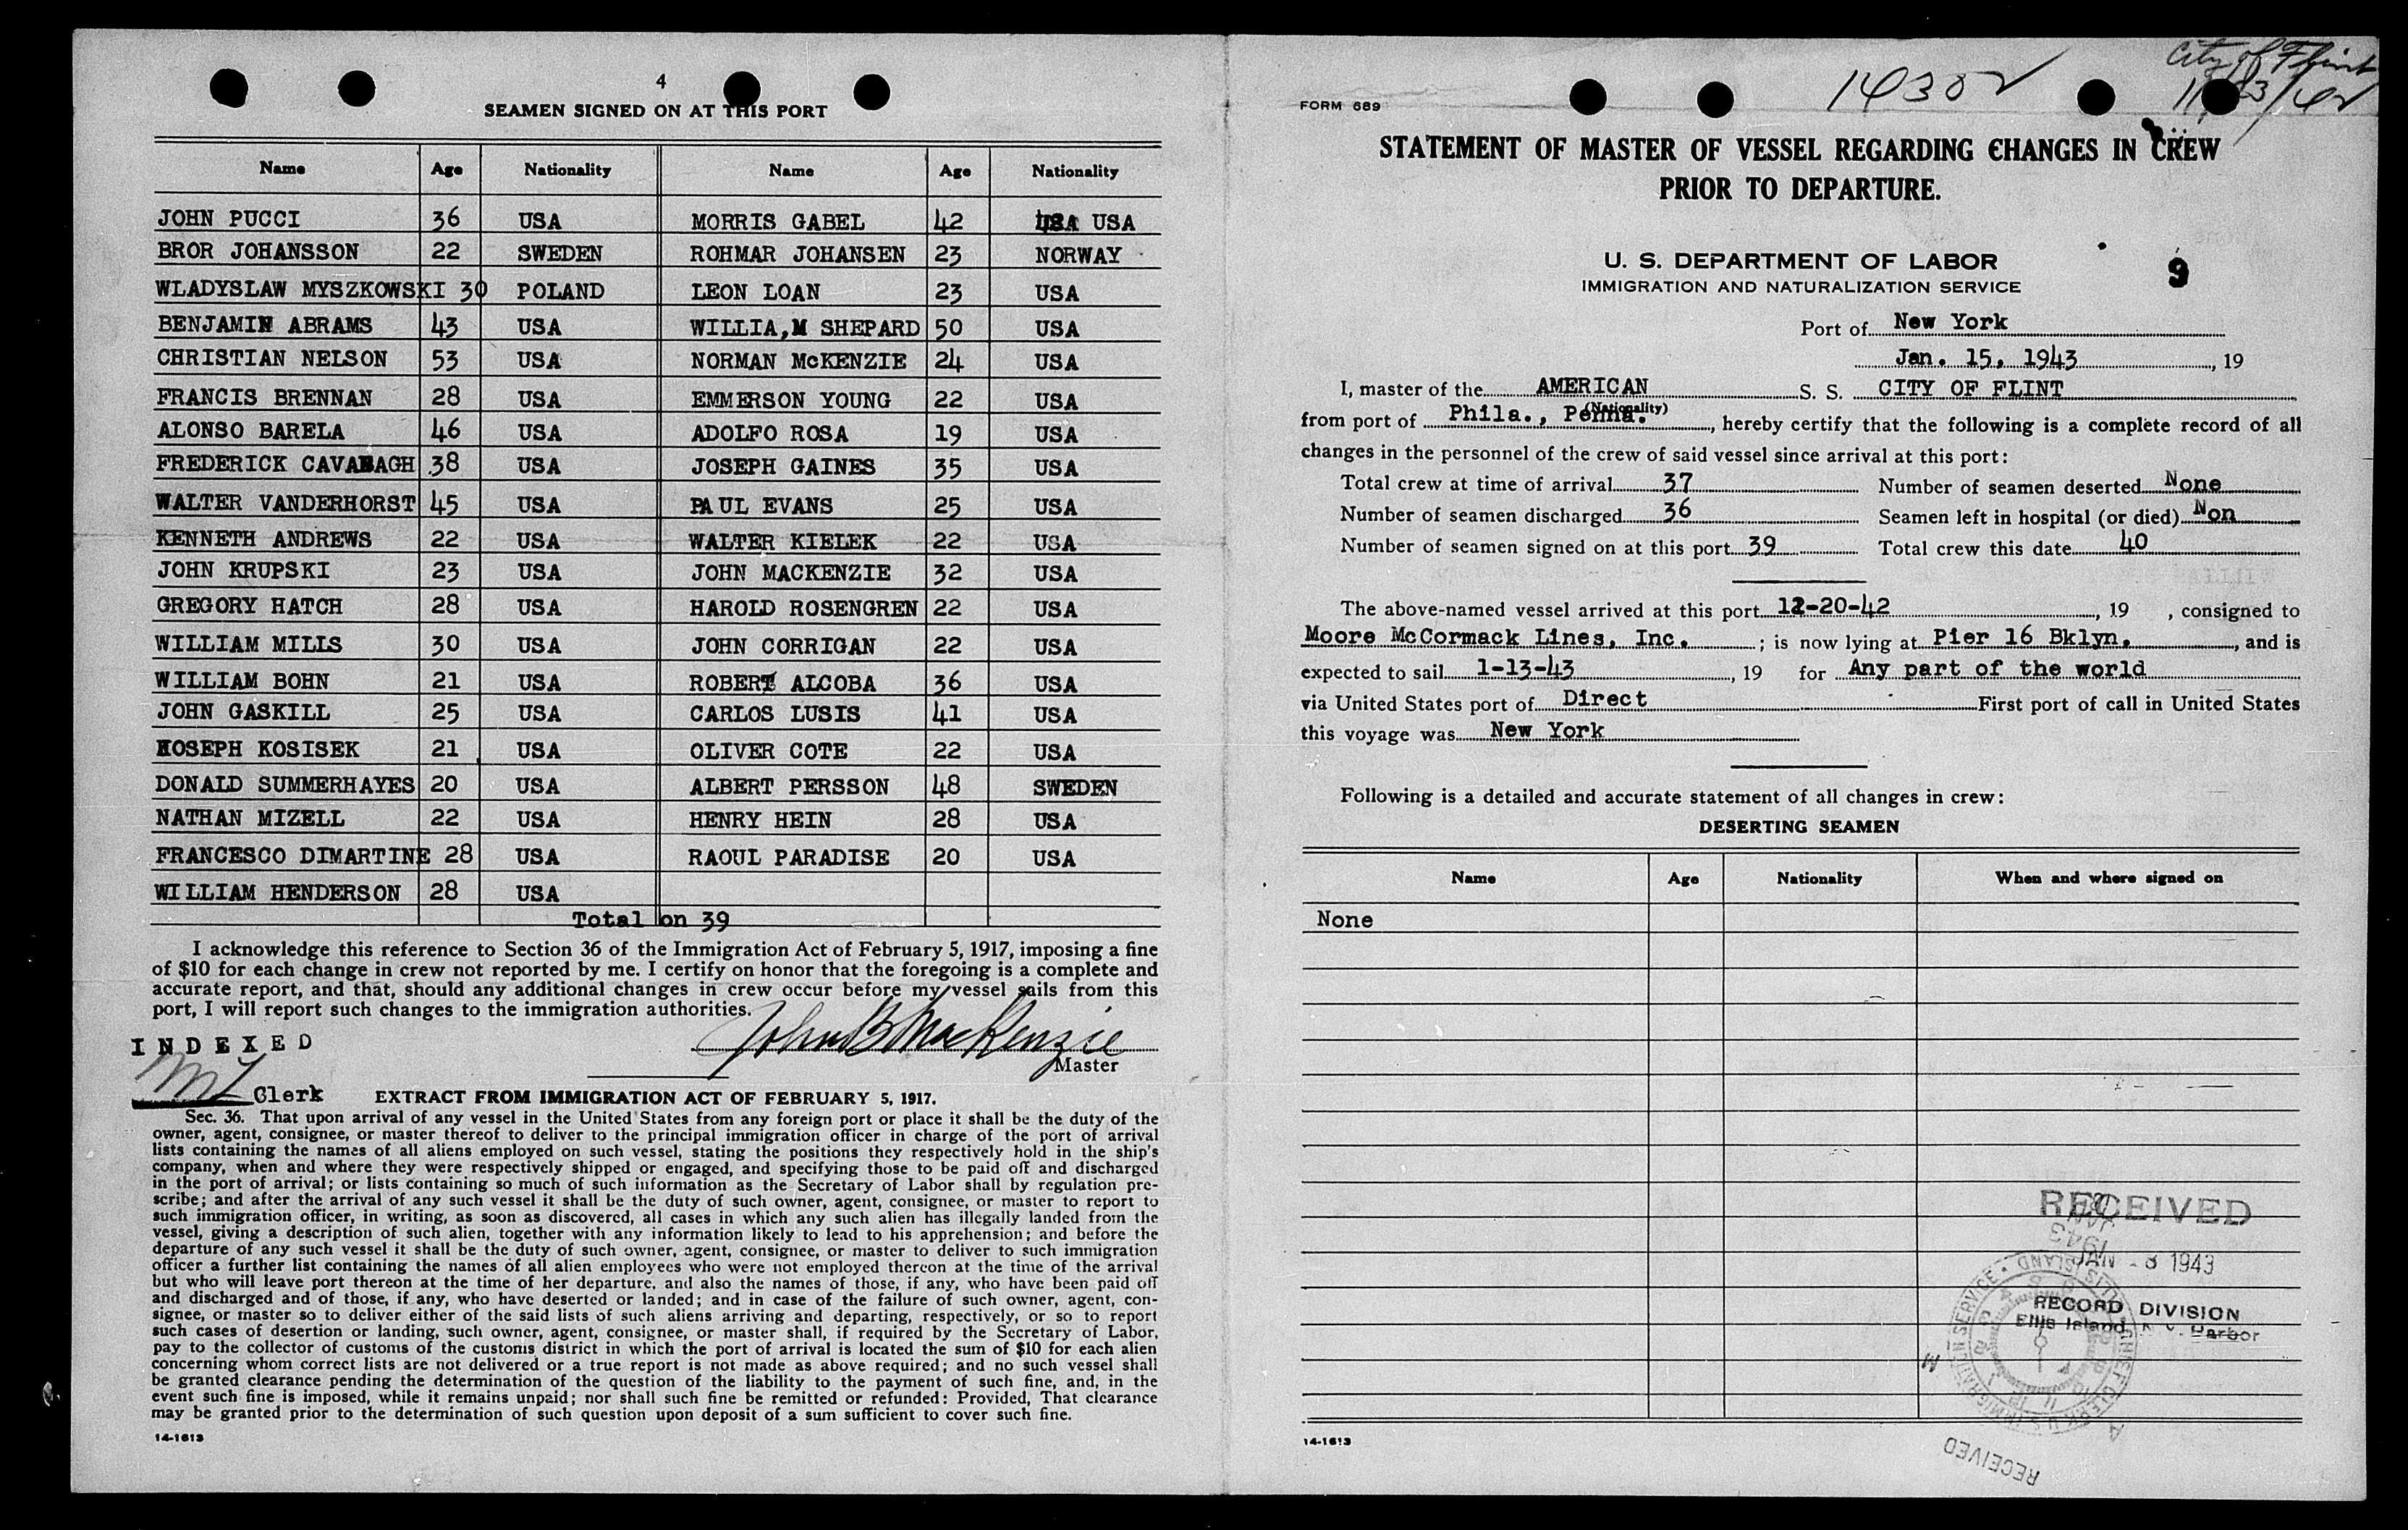 4
SEAMEN SIGNED ON AT THIS PORT
Name Age Nationality Name Age Nationality
JOHN PUCCI 36 USA MORRIS GABEL 42 USA USA
BROR JOHANSSON 22 SWEDEN ROHMAR JOHANSEN 23 NORWAY
WLADYSLAW MYSZKOWSKI 30 POLAND LEON LOAN 23 USA
BENJAMIN ABRAMS 43 USA WILLIA,M SHEPARD 50 USA
CHRISTIAN NELSON 53 USA NORMAN McKENZIE 24 USA
FRANCIS BRENNAN 28 USA EMMERSON YOUNG 22 USA
ALONSO BARELA 46 USA ADOLFO ROSA 19 USA
FREDERICK CAVANAGH 38 USA JOSEPH GAINES 35 USA
WALTER VANDERHORST 45 USA PAUL EVANS 25 USA
KENNETH ANDREWS 22 USA WALTER KIELEK 22 USA
JOHN KRUPSKI 23 USA JOHN MACKENZIE 32 USA
GREGORY HATCH 28 USA HAROLD ROSENGREN 22 USA
WILLIAM MILLS 30 USA JOHN CORRIGAN 22 USA
WILLIAM BOHN 21 USA ROBERT ALCOBA 36 USA
JOHN GASKILL 25 USA CARLOS LUSIS 41 USA
HOSEPH KOSISEK 21 USA OLIVER COTE 22 USA
DONALD SUMMERHAYES 20 USA ALBERT PERSSON 48 SWEDEN
NATHAN MIZELL 22 USA HENRY HEIN 28 USA
FRANCESCO DIMARTINE 28 USA RAOUL PARADISE 20 USA
WILLIAM HENDERSON 28 USA
Total on 39
I acknowledge this reference to Section 36 of the Immigration Act of February 5, 1917, imposing a fine
of $10 for each change in crew not reported by me. I certify on honor that the foregoing is a complete and
accurate report, and that, should any additional changes in crew occur before my vessel sails from this
port, I will report such changes to the immigration authorities.
John B MacKenzie
Master
INDEXED
Clerk
EXTRACT FROM IMMIGRATION ACT OF FEBRUARY 5, 1917.
Sec. 36. That upon arrival of any vessel in the United States from any foreign port or place it shall be the duty of the
owner, agent, consignee, or master thereof to deliver to the principal immigration officer in charge of the port of arrival
lists containing the names of all aliens employed on such vessel, stating the positions they respectively hold in the ship's
company, when and where they were respectively shipped or engaged, and specifying those to be paid off and discharged
in the port of arrival; or lists containing so much of such information as the Secretary of Labor shall by regulation pre-
scribe; and after the arrival of any such vessel it shall be the duty of such owner, agent, consignee, or master to report to
such immigration officer, in writing, as soon as discovered, all cases in which any such alien has illegally landed from the
vessel, giving a description of such alien, together with any information likely to lead to his apprehension; and before the
departure of any such vessel it shall be the duty of such owner, agent, consignee, or master to deliver to such immigration
officer a further list containing the names of all alien employees who were not employed thereon at the time of the arrival
but who will leave port thereon at the time of her departure, and also the names of those, if any, who have been paid off
and discharged and of those, if any, who have deserted or landed; and in case of the failure of such owner, agent, con-
signee, or master so to deliver either of the said lists of such aliens arriving and departing, respectively, or so to report
such cases of desertion or landing, such owner, agent, consignee, or master shall, if required by the Secretary of Labor,
pay to the collector of customs of the customs district in which the port of arrival is located the sum of $10 for each alien
concerning whom correct lists are not delivered or a true report is not made as above required; and no such vessel shall
be granted clearance pending the determination of the question of the liability to the payment of such fine, and, in the
event such fine is imposed, while it remains unpaid; nor shall such fine be remitted or refunded: Provided, That clearance
may be granted prior to the determination of such question upon deposit of a sum sufficient to cover such fine.
14-1613
City of Flint
14302
FORM 689
STATEMENT OF MASTER OF VESSEL REGARDING CHANGES IN CREW
PRIOR TO DEPARTURE.
U. S. DEPARTMENT OF LABOR
IMMIGRATION AND NATURALIZATION SERVICE
9
Port of New York
Jan. 15, 1943, 19
I, master of the AMERICAN S. S. CITY OF FLINT
(Nationality)
from port of Phila., Penna., hereby certify that the following is a complete record of all
changes in the personnel of the crew of said vessel since arrival at this port:
Total crew at time of arrival 37 Number of seamen deserted None
Number of seamen discharged 36 Seamen left in hospital (or died) Non
Number of seamen signed on at this port 39 Total crew this date 40
The above-named vessel arrived at this port 12-20-42, 19 , consigned to
Moore McCormack Lines, Inc. ; is now lying at Pier 16 Bklyn., and is
expected to sail 1-13-43, 19 for Any part of the world
via United States port of Direct First port of call in United States
this voyage was New York
Following is a detailed and accurate statement of all changes in crew:
DESERTING SEAMEN
Name Age Nationality When and where signed on
None
RECEIVED
JAN 1943
RECORD DIVISION
Ellis Island, N. Y. Harbor
RECEIVED
14-1613